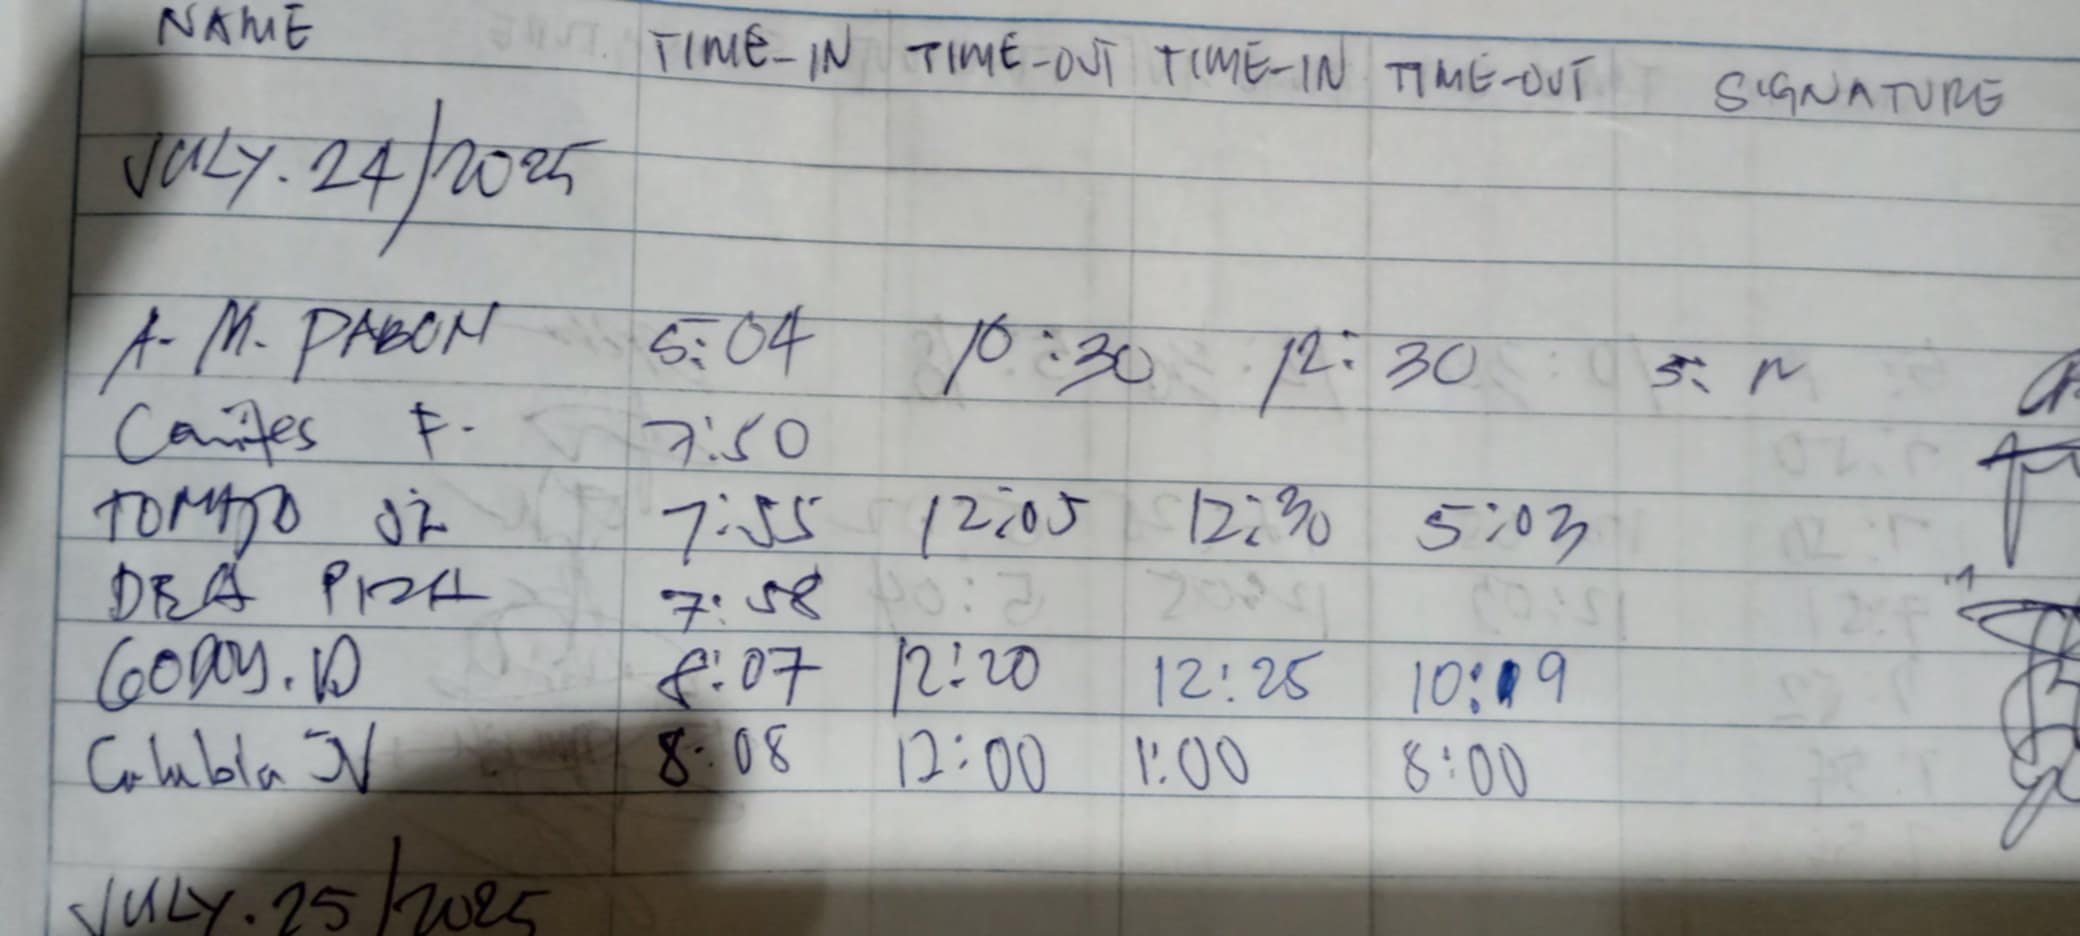 NAME TIME-IN TIME-OUT TIME-IN TIME-OUT SIGNATURE
JULY.24/2025
A. M. PABON 5:04 10:30 12:30 5:
F. 7:50
TOMATO JR 7:55 12:05 12:30 5:03
7:58
GODOY. D 8:07 12:20 12:25 10:19
8:08 12:00 1:00 8:00
JULY.25/2025